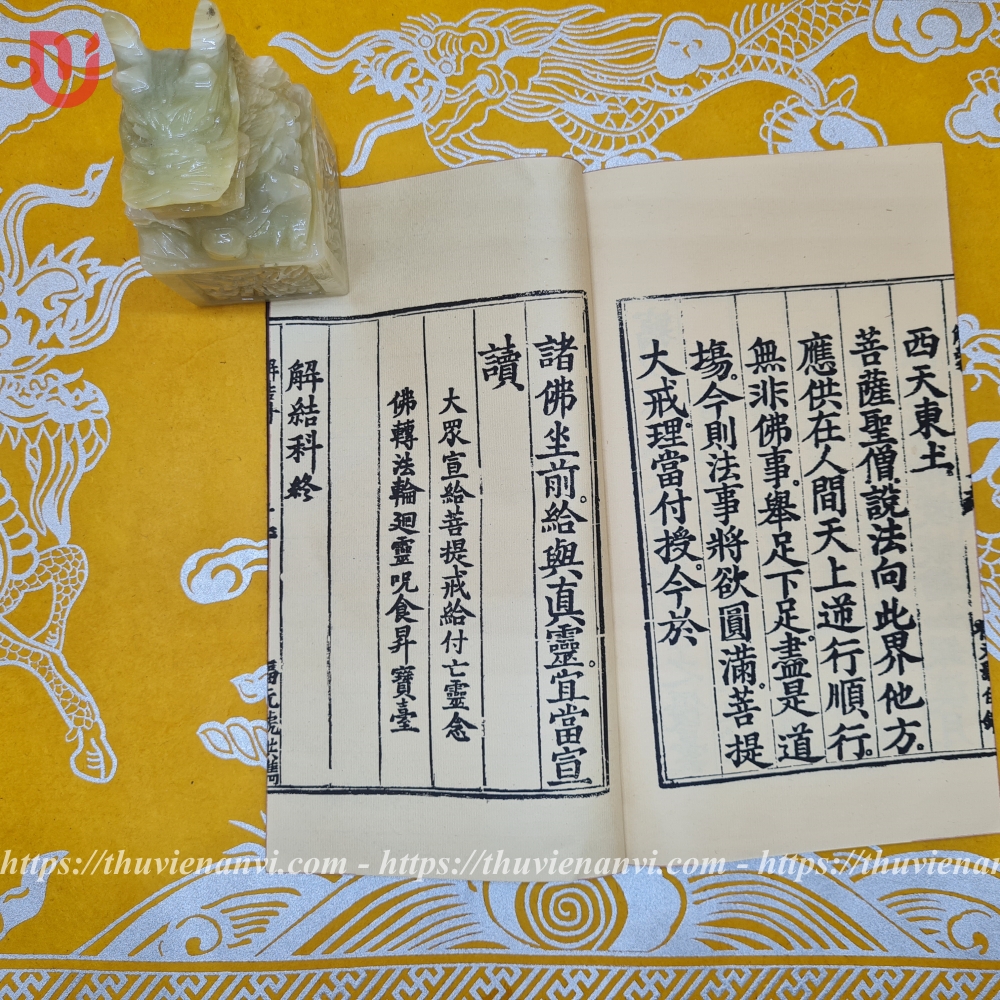 西天東土。
菩薩聖僧說法向此界他方。
應供在人間天上逆行順行。
無非佛事。舉足下足。盡是道
塲。今則法事將欲圓滿。菩提
大戒。理當付授。今於
諸佛坐前。給與真靈。宜當宣
讀
大眾宣給菩提戒給付亡靈念
佛轉法輪廻靈呪食昇寶臺
解結科終
https://thuvienanvi.com - https://thuvienanvi.com - https://thuvienan